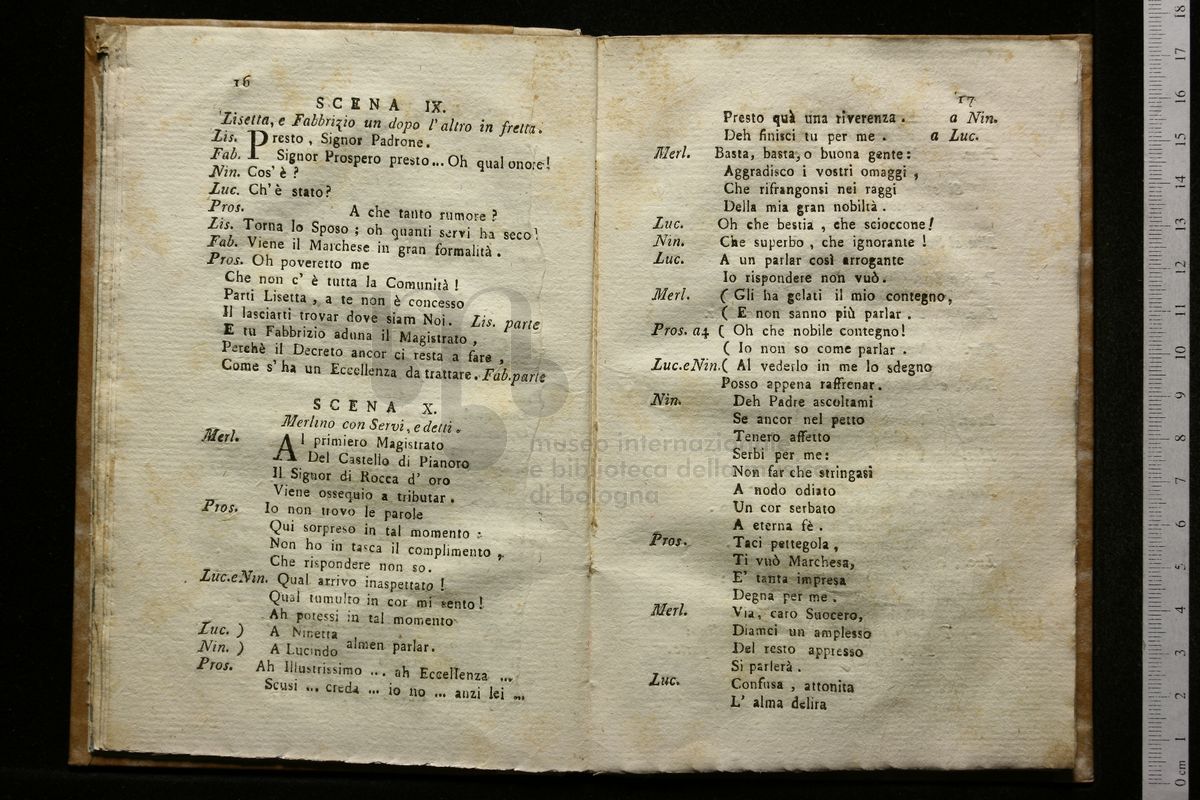 16
SCENA IX.
Lisetta, e Fabbrizio un dopo l'altro in fretta.
Lis. Presto, Signor Padrone.
Fab. Signor Prospero presto... Oh qual onore!
Nin. Cos'è?
Luc. Ch'è stato?
Pros. A che tanto rumore?
Lis. Torna lo Sposo; oh quanti servi ha seco!
Fab. Viene il Marchese in gran formalità.
Pros. Oh poveretto me
Che non c'è tutta la Comunità!
Parti Lisetta, a te non è concesso
Il lasciarti trovar dove siam Noi. Lis. parte
E tu Fabbrizio aduna il Magistrato,
Perchè il Decreto ancor ci resta a fare,
Come s'ha un Eccellenza da trattare. Fab. parte
SCENA X.
Merlino con Servi, e detti.
Merl. Al primiero Magistrato
Del Castello di Pianoro
Il Signor di Rocca d'oro
Viene ossequio a tributar.
Pros. Io non trovo le parole
Qui sorpreso in tal momento:
Non ho in tasca il complimento,
Che rispondere non so.
Luc. e Nin. Qual arrivo inaspettato!
Qual tumulto in cor mi sento!
Ah potessi in tal momento
Luc. ) A Ninetta
Nin. ) A Lucindo almen parlar.
Pros. Ah Illustrissimo ... ah Eccellenza ...
Scusi ... creda ... io no ... anzi lei ...
17
Presto quà una riverenza. a Nin.
Deh finisci tu per me. a Luc.
Merl. Basta, basta, o buona gente:
Aggradisco i vostri omaggi,
Che rifrangonsi nei raggi
Della mia gran nobiltà.
Luc. Oh che bestia, che scioccone!
Nin. Che superbo, che ignorante!
Luc. A un parlar così arrogante
Io rispondere non vuò.
Merl. ( Gli ha gelati il mio contegno,
( E non sanno più parlar.
Pros. a4 ( Oh che nobile contegno!
( Io non so come parlar.
Luc. e Nin. ( Al vederlo in me lo sdegno
Posso appena raffrenar.
Nin. Deh Padre ascoltami
Se ancor nel petto
Tenero affetto
Serbi per me:
Non far che stringasi
A nodo odiato
Un cor serbato
A eterna fè.
Pros. Taci pettegola,
Ti vuò Marchesa,
E' tanta impresa
Degna per me.
Merl. Via, caro Suocero,
Diamci un amplesso
Del resto appresso
Si parlerà.
Luc. Confusa, attonita
L'alma delira
museo internazionale
e biblioteca della
di bologna